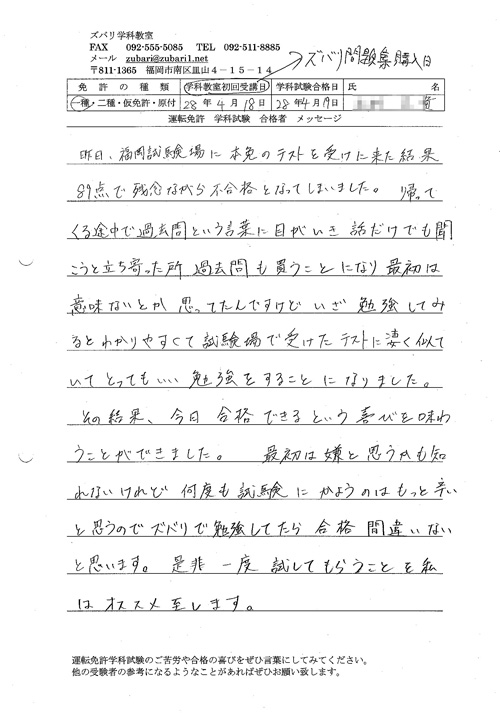 ズバリ学科教室
FAX 092-555-5085 TEL 092-511-8885
メール zubari@zubari1.net
〒811-1365 福岡市南区皿山4-15-14
ズバリ問題集購入日
免許の種類 学科教室初回受講日 学科試験合格日 氏 名
一種・二種・仮免許・原付 28年4月18日 28年4月19日
運転免許 学科試験 合格者 メッセージ
昨日、福岡試験場に本免のテストを受けに来た結果
89点で残念ながら不合格となってしまいました。 帰って
くる途中で過去問という言葉に目がいき 話だけでも聞
こうと立ち寄った所 過去問も買うことになり最初は
意味ないとか思ってたんですけど いざ 勉強してみ
るとわかりやすくて試験場で受けたテストに凄く似て
いてとってもいい勉強をすることになりました。
その結果、今日 合格できるという喜びを味わ
うことができました。 最初は嫌と思うかも知
れないけれど 何度も試験に かようのはもっと辛い
と思うのでズバリで勉強してたら合格間違いない
と思います。是非一度試してもらうことを私
はオススメ至します。
運転免許学科試験のご苦労や合格の喜びをぜひ言葉にしてみてください。
他の受験者の参考になるようなことがあればぜひお願い致します。